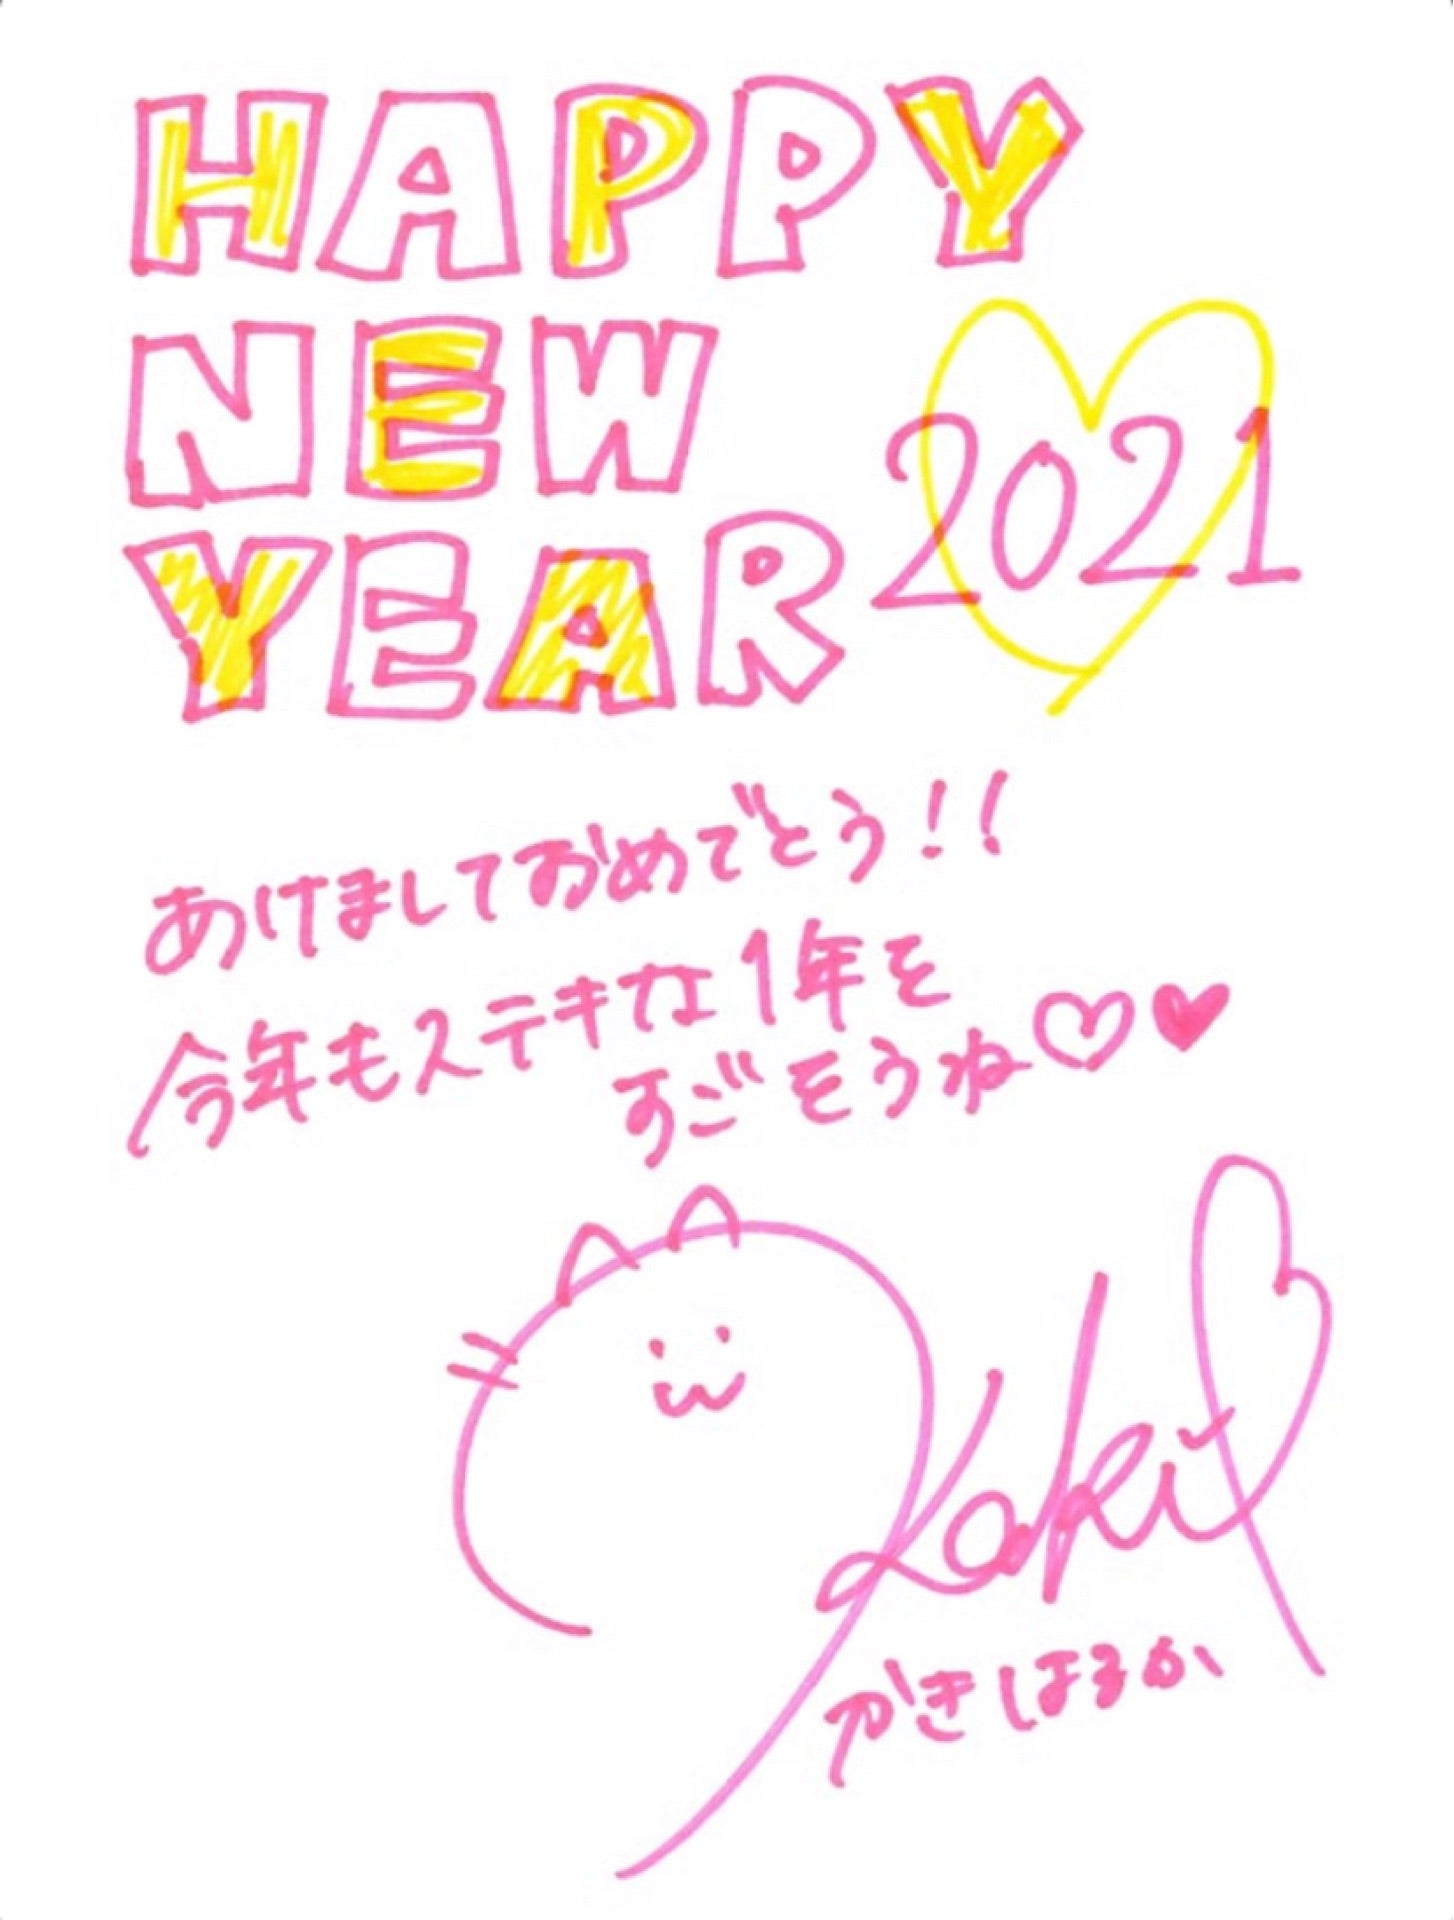 HAPPY
NEW
YEAR 2021
あけましておめでとう!!
今年もステキな1年を
すごそうね♡♥
Kaki
かきはるか